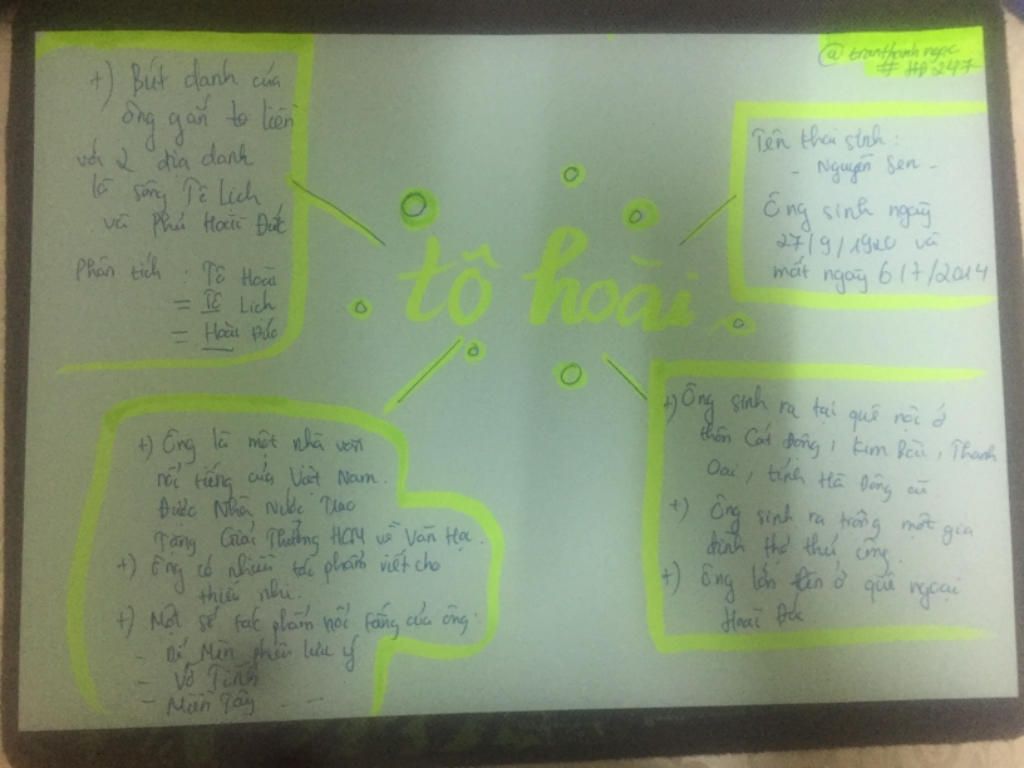 @tranthanhngoc
# HP247
+) Bút danh của
ông gắn to liền
với 2 địa danh
là sông Tô Lịch
và phủ Hoài Đức
Phân tích : Tô Hoài
= Tô Lịch
= Hoài Đức
tô hoài
Tên thai sinh :
- Nguyễn Sen -
Ông sinh ngày
27/9/1920 và
mất ngày 6/7/2014
+) Ông là một nhà văn
nổi tiếng của Việt Nam.
Được Nhà Nước Trao
Tặng Giải Thưởng HCM về Văn Học.
+) Ông có nhiều tác phẩm viết cho
thiếu nhi.
+) Một số tác phẩm nổi tiếng của ông:
- Dế Mèn phiêu lưu ý
- Vỡ Tỉnh
- Miền Tây - -
+) Ông sinh ra tại quê nội ở
thôn Cát Động, Kim Bài, Thanh
Oai, tỉnh Hà Đông cũ
+) Ông sinh ra trong một gia
đình thợ thủ công.
+) Ông lớn lên ở quê ngoại
Hoài Đức